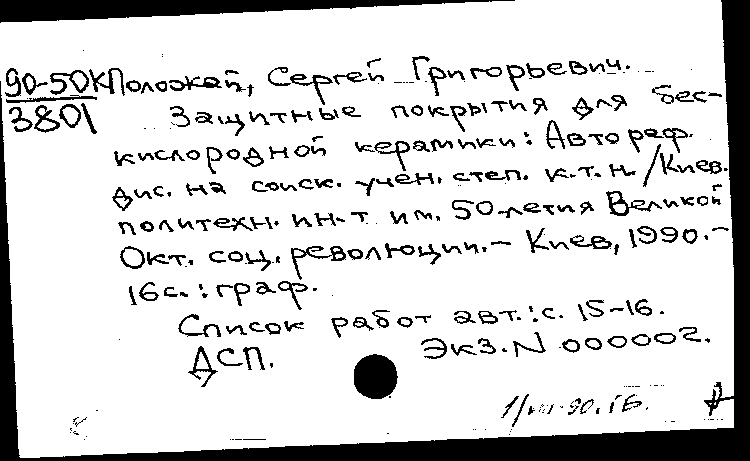 90-50К Положай, Сергей Григорьевич.
3801 Защитные покрытия для бес-
кислородной керамики: Автореф.
дис. на соиск. учен. степ. к.т.н. / Киев.
политехн. ин-т им. 50-летия Великой
Окт. соц. революции. – Киев, 1990. –
16 с. : граф.
Список работ авт.: с. 15-16.
ДСП. Экз. N 000002.